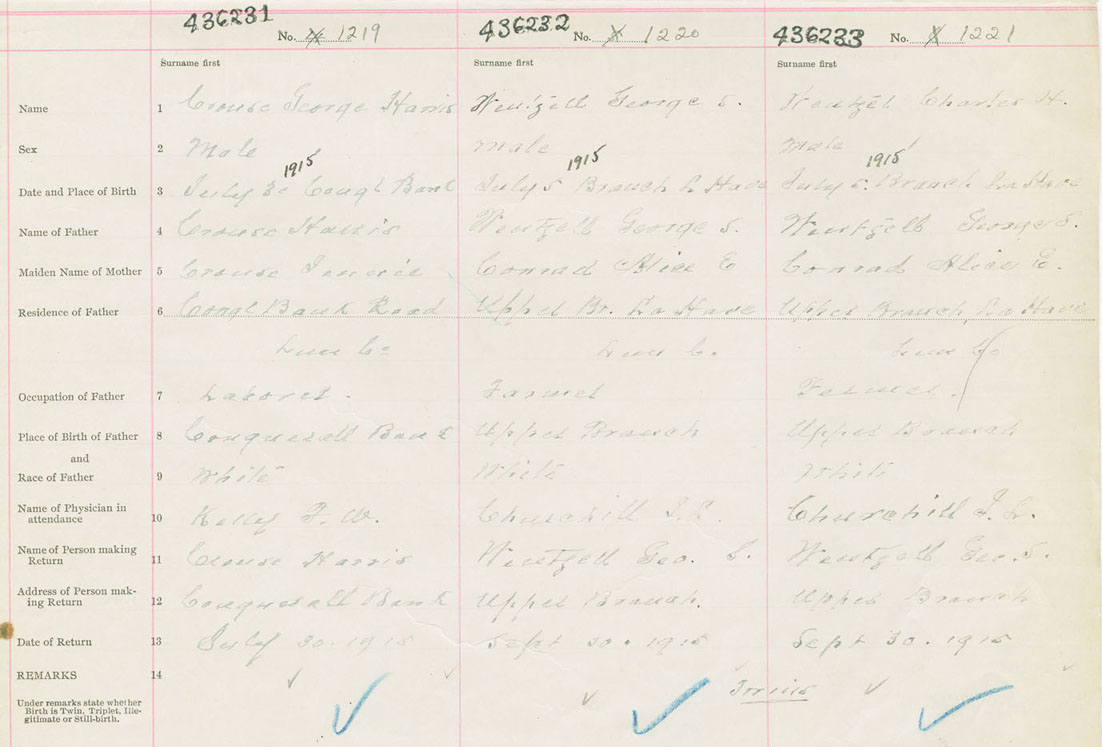 436231 436232 436233
No. 1219 No. 1220 No. 1221
Surname first Surname first Surname first
Name 1 Crouse George Harris Wentzell George S. Wentzel Charles H.
Sex 2 Male Male Male
1915 1915 1915
Date and Place of Birth 3 July Conql Bank July 5 Branch La Have July 5. Branch La Have
Name of Father 4 Crouse Harris Wentzell George S. Wentzell George S.
Maiden Name of Mother 5 Crouse Conrad Alice E Conrad Alice E.
Residence of Father 6 Conql Bank Road Upper Br. La Have Upper Branch La Have
Lun Co Lun Co. Lun Co
Occupation of Father 7 Laborer. Farmer Farmer.
Place of Birth of Father 8 Conquerall Bank Upper Branch Upper Branch
and
Race of Father 9 White White White
Name of Physician in
attendance 10 Kelly F. W. Churchill Churchill
Name of Person making
Return 11 Crouse Harris Wentzell Geo. S. Wentzell Geo. S.
Address of Person mak-
ing Return 12 Conquerall Bank Upper Branch. Upper Branch
Date of Return 13 July 30. 1915 Sept 30. 1915 Sept 30. 1915
REMARKS 14
Twins
Under remarks state whether
Birth is Twin. Triplet, Ille-
gitimate or Still-birth.